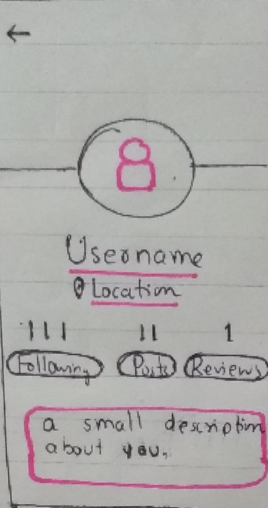 Username
Location
111 11 1
Following Posts Reviews
a small description
about you.